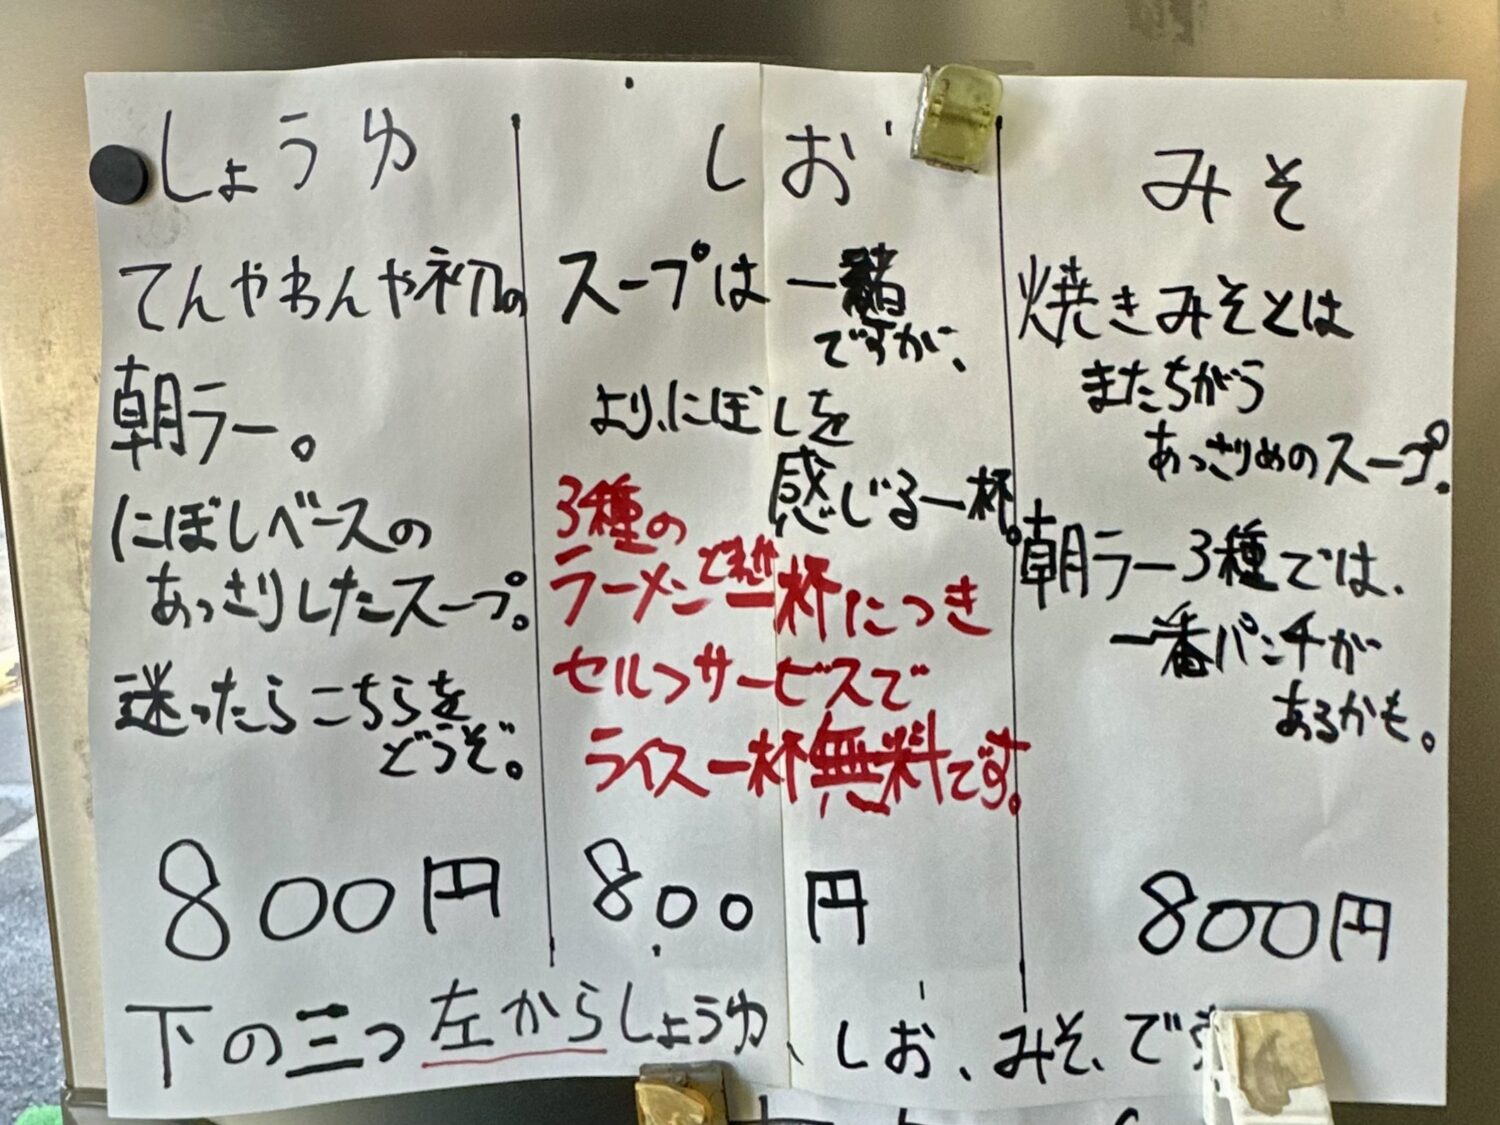 しょうゆ
てんやわんや初の
朝ラー。
にぼしベースの
あっさりしたスープ。
迷ったらこちらを
どうぞ。
800円
しお
スープは一緒
ですが、
より、にぼしを
感じる一杯。
3種の
ラーメンどれか一杯につき
セルフサービスで
ライス一杯無料です。
800円
みそ
焼きみそとは
またちがう
あっさりめのスープ。
朝ラー3種では、
一番パンチが
あるかも。
800円
下の三つ左からしょうゆ、しお、みそ、で